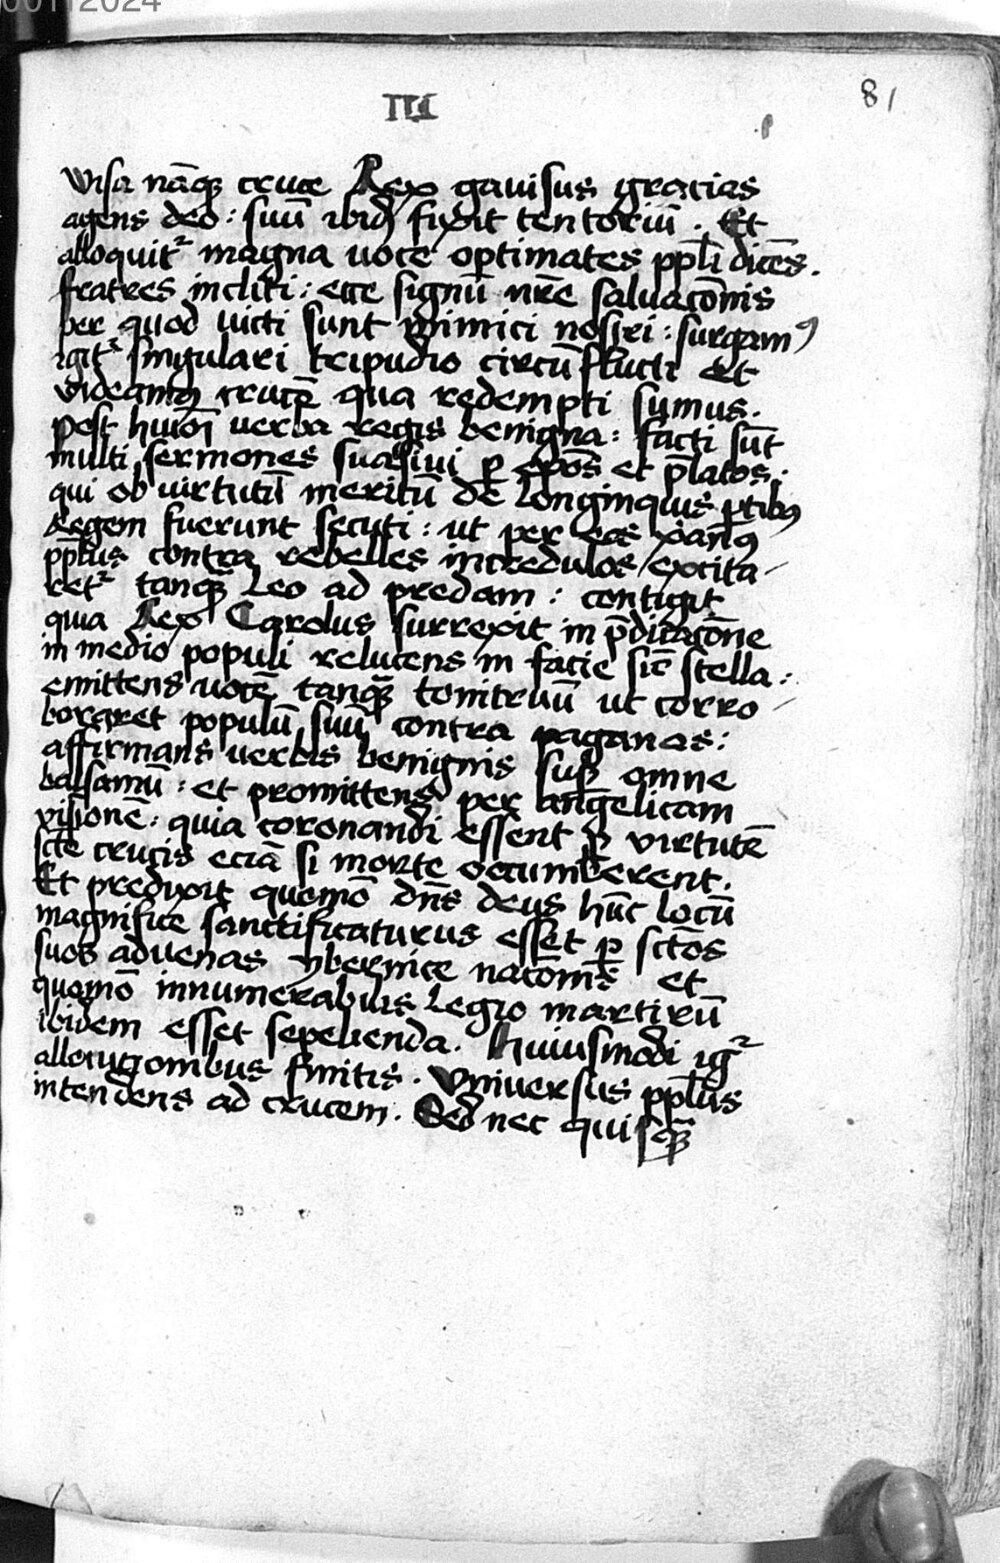 00112024
III
81
visa nāqꝫ cruce Rex gavisus gracias
agens deo: suū ibidē fixit tentoriū. Et
alloquitᵘ magna voce optimates ppli dicēs.
fratres incliti: ecce signū nrē salvacōnis
per quod victi sunt inimici nostri: surgamꝰ
igitᵘ singulari tripudio circūfluctī et
videamꝰ crucē qua redempti sumus.
Post huiōi verba regis benigna: facti sūt
multi sermones suasivi ꝑ epōs et p̄latos.
qui ob virtutū meritū de longinquis ꝑtibꝰ
Regem fuerunt secuti: ut per eos xꝑanꝰ
pplus contra rebelles incredulos excita-
retᵘ tanqꝫ Leo ad predam: contigit
quia Rex Carolus surrexit in p̄dicacōne
in medio populi relucens in facie sic̄ stella:
emittens vocē tanqꝫ tonitruū ut corro-
boraret populū suū contra paganos:
affirmans verbis benignis suꝑ omne
balsamū: et promittens per angelicam
visionē: quia coronandi essent ꝑ virtutē
scte crucis eciā si morte occumberent.
Et predixit quemō dn̄s deus hūc locū
magnifice sanctificaturus esset ꝑ sctōs
suos advenas ybernice nacōnis et
quomō innumerabilis Legio martirū
ibidem esset sepelienda. Huiusmodi igᵘ
allocutionibus finitis. Universus pplus
intendens ad crucem. Sed nec quisqꝫ